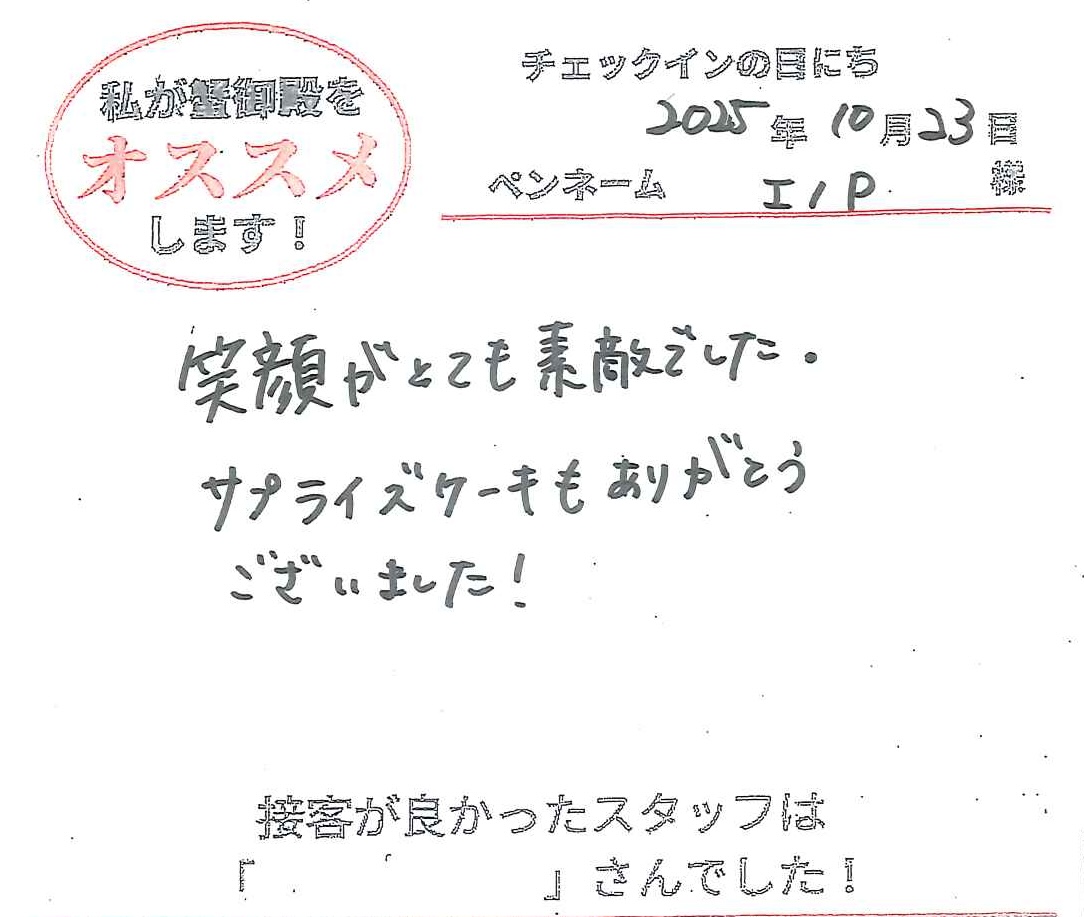 私が蟹御殿を
オススメ
します！
チェックインの日にち
2025年10月23日
ペンネーム I/P 様
笑顔がとても素敵でした.
サプライズケーキもありがとう
ございました!
接客が良かったスタッフは
「 」さんでした！